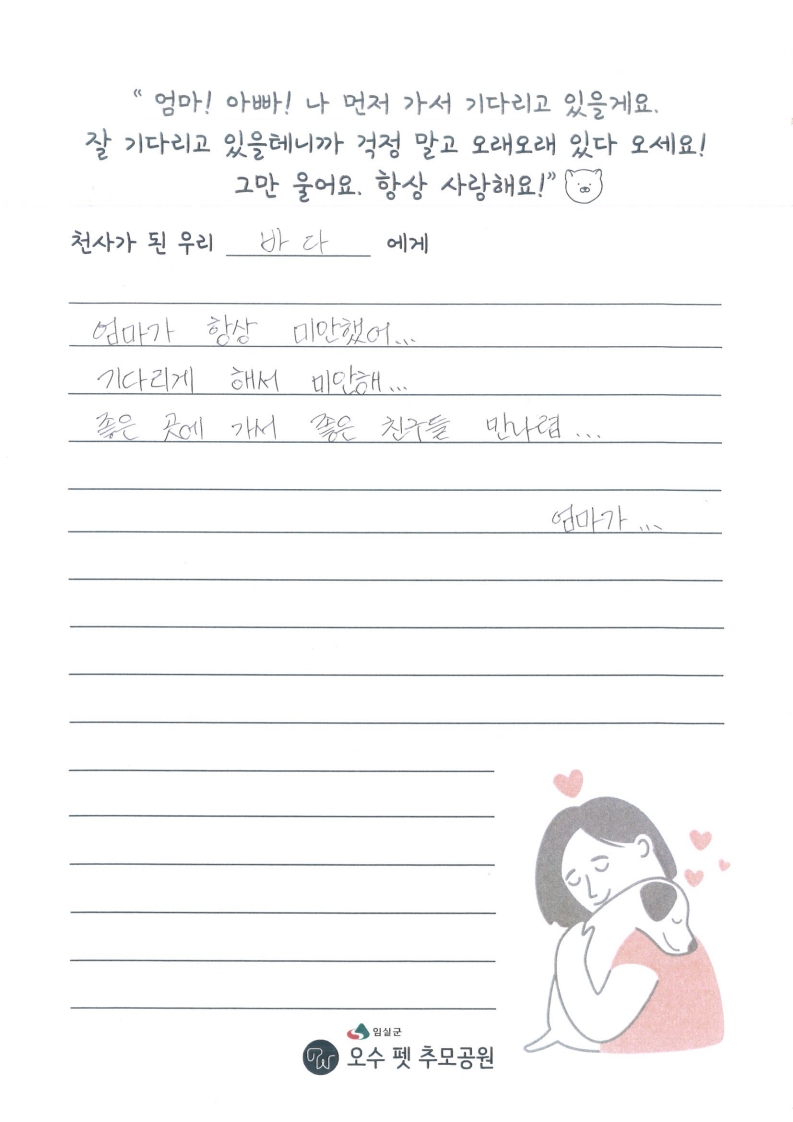 “ 엄마! 아빠! 나 먼저 가서 기다리고 있을게요.
잘 기다리고 있을테니까 걱정 말고 오래오래 있다 오세요!
그만 울어요. 항상 사랑해요!”
천사가 된 우리 바다 에게
엄마가 항상 미안했어...
기다리게 해서 미안해...
좋은 곳에 가서 좋은 친구들 만나렴...
엄마가...
임실군
오수 펫 추모공원